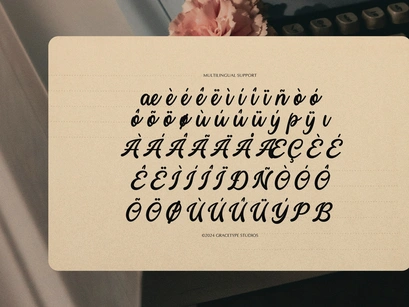 MULTILINGUAL SUPPORT
æ è é ê ë ì í î ï ñ ò ó
ô õ ö ø ù ú û ü ý þ ÿ ı
À Á Â Ã Ä Å Æ Ç È É
Ê Ë Ì Í Î Ï Ð Ñ Ò Ó Ô
Õ Ö Ø Ù Ú Û Ü Ý Þ ß
©2024 GRACETYPE STUDIOS